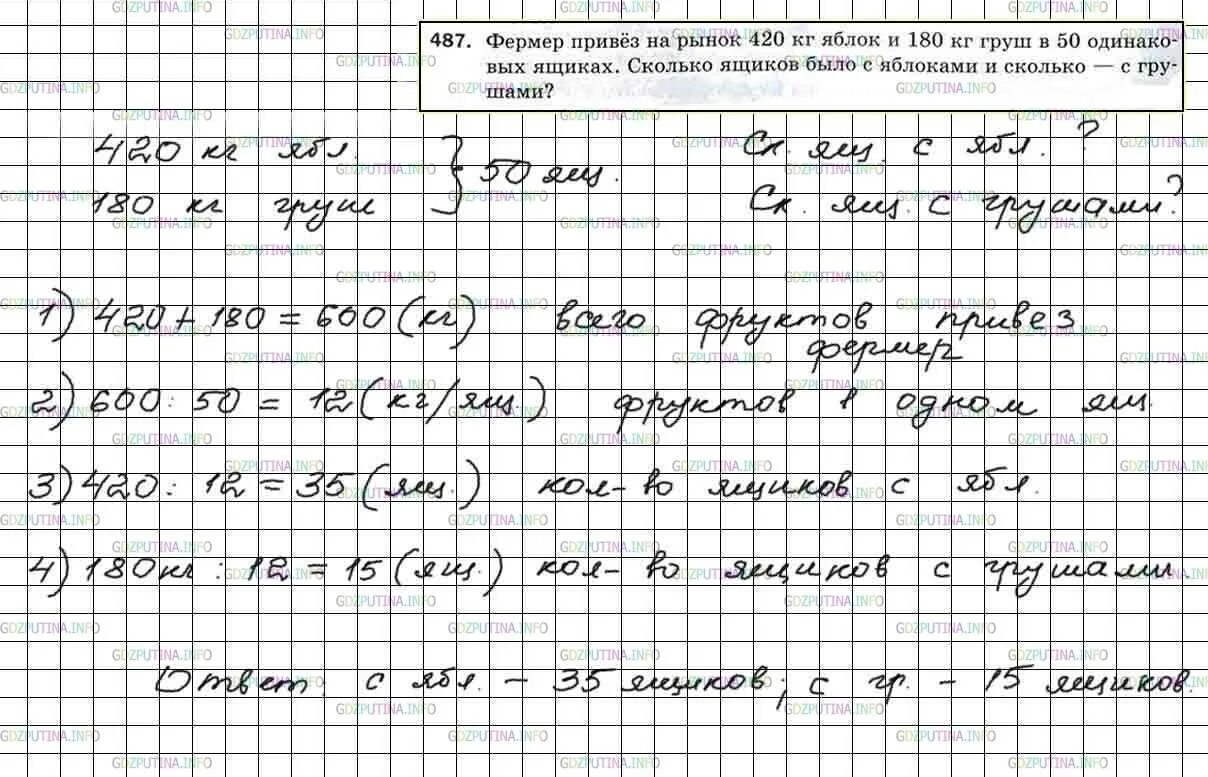 487. Фермер привёз на рынок 420 кг яблок и 180 кг груш в 50 одинако-
вых ящиках. Сколько ящиков было с яблоками и сколько — с гру-
шами?
420 кг ябл. } 50 ящ. Ск. ящ. с ябл. ?
180 кг груш Ск. ящ. с грушами?
1) 420 + 180 = 600 (кг) всего фруктов привез
фермер
2) 600 : 50 = 12 (кг/ящ.) фруктов в одном ящ.
3) 420 : 12 = 35 (ящ.) кол-во ящиков с ябл.
4) 180кг : 12 = 15 (ящ.) кол-во ящиков с грушами.
Ответ: с ябл. - 35 ящиков; с гр. - 15 ящиков.
GDZPUTINA.INFO